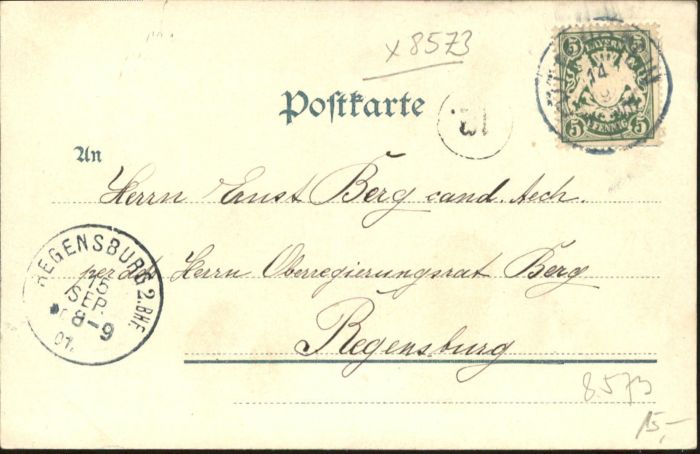 x 8573
5 BAYERN 5
5 PFENNIG 5
14
9
Postkarte
An
Herrn Ernst Berg cand. tech.
per adr Herrn Oberregierungsrat Berg
Regensburg
REGENSBURG 2.BHF.
15
SEP.
8-9
01.
8573
15,-